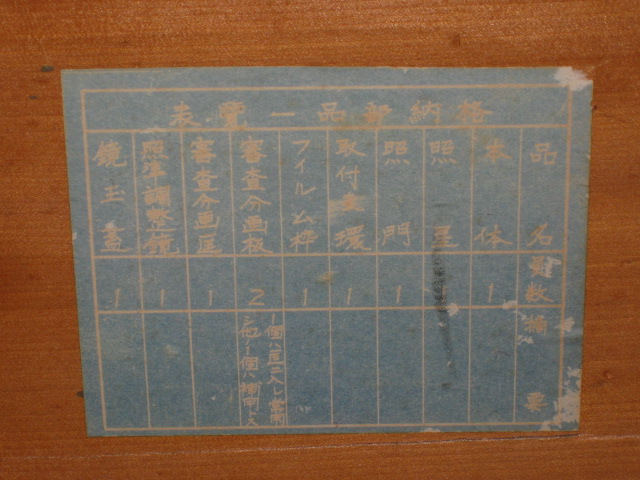 格納部品一覽表
品名 員数 摘要
本体 1
照星
照門 1
取付環 1
フイルム枠 1
審査分画板 2 1個ハ匡ニ入レ常用
シ他ノ1個ハ補用トス
審査分画匡 1
照準調整鏡 1
鏡玉蓋 1